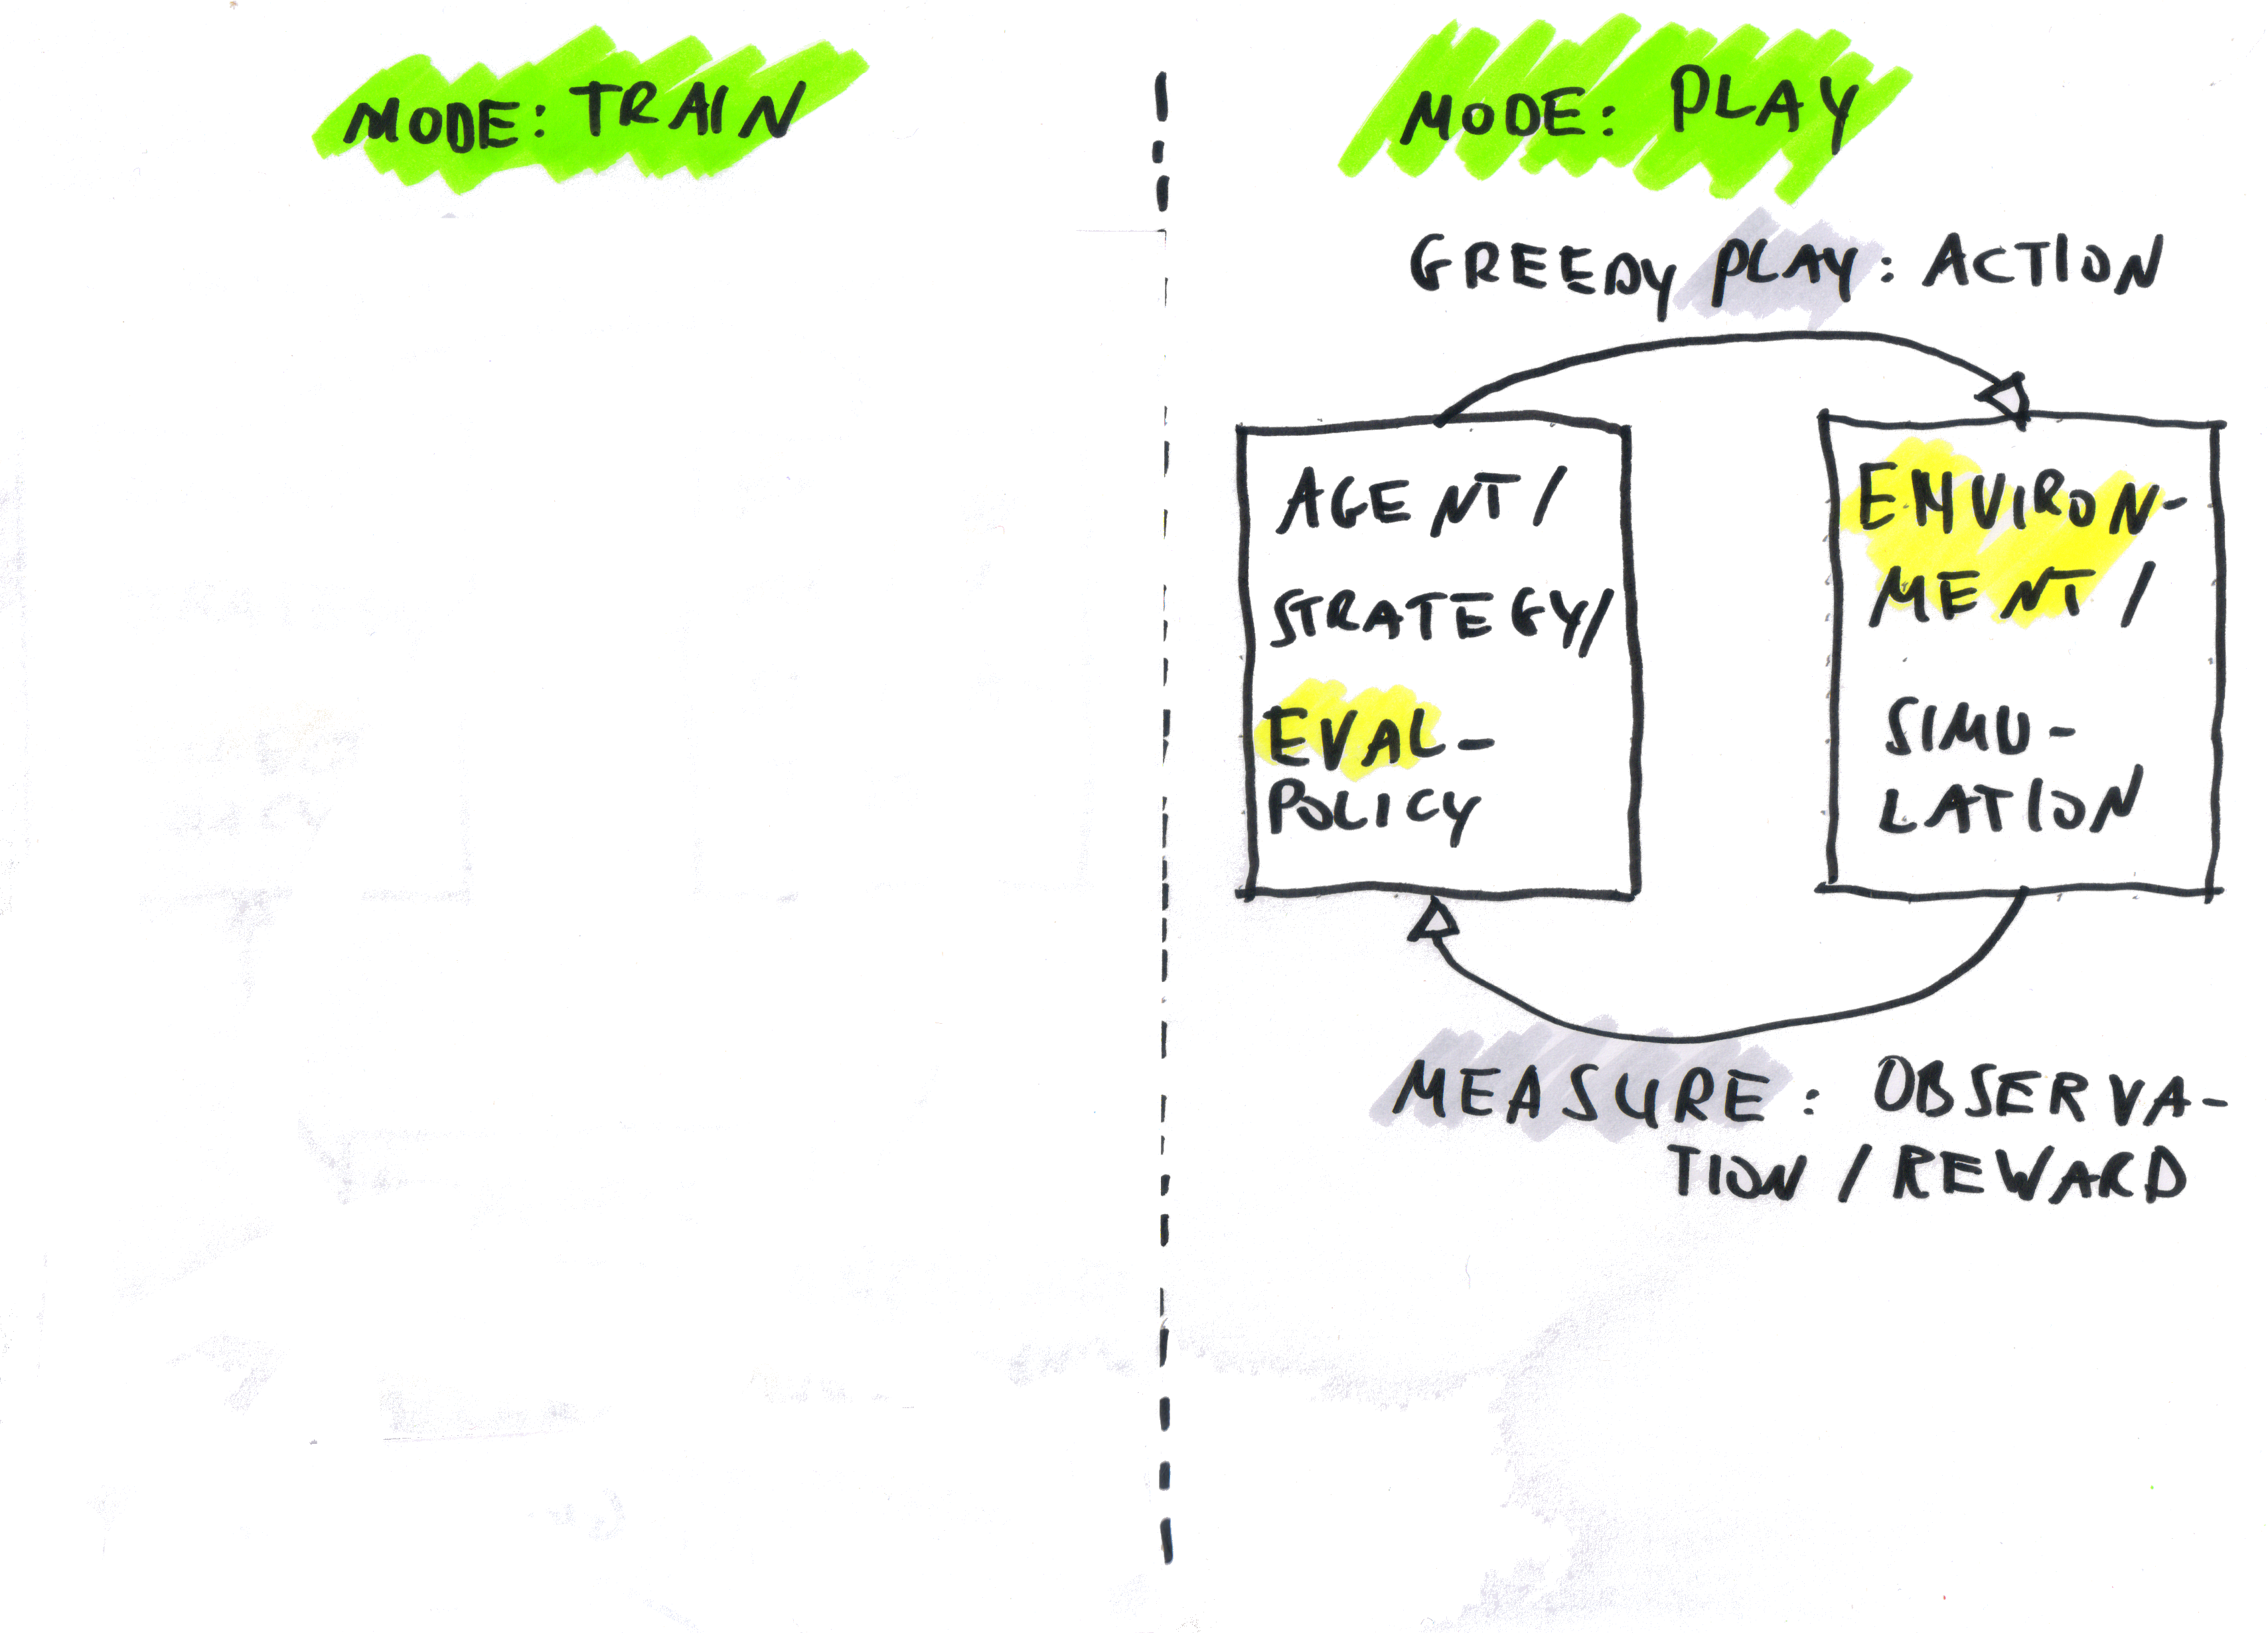 MODE: TRAIN
MODE: PLAY
GREEDY PLAY: ACTION
AGENT/
STRATEGY/
EVAL-
POLICY
ENVIRON-
MENT/
SIMU-
LATION
MEASURE: OBSERVA-
TION / REWARD